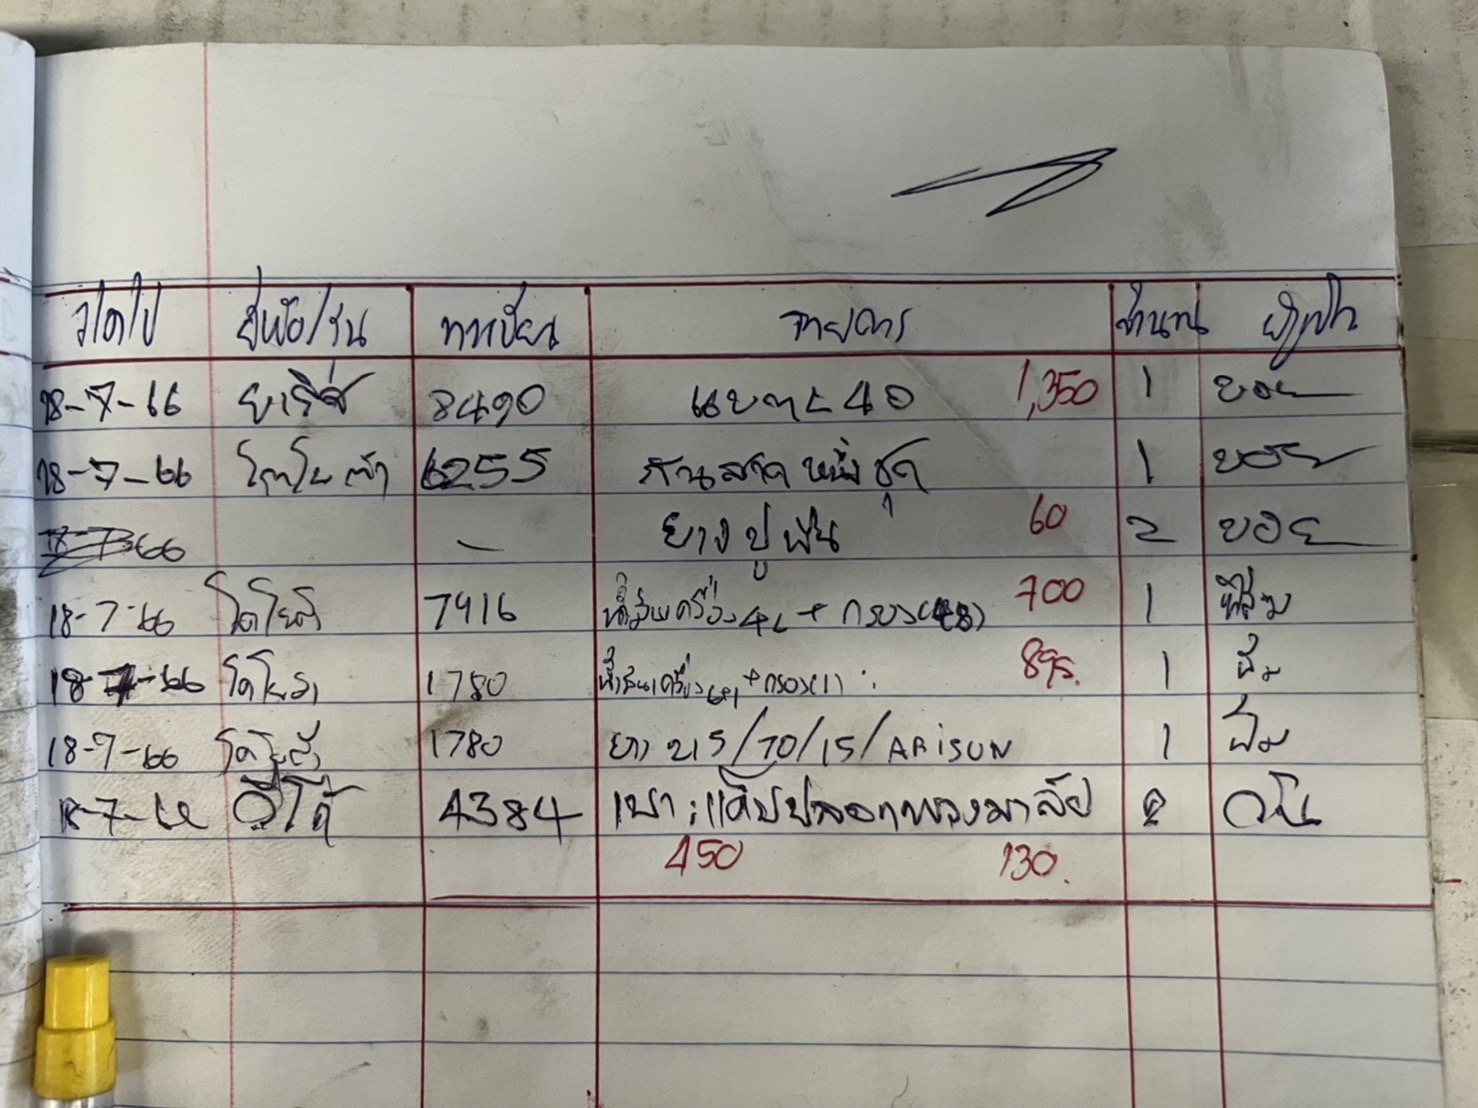 ว/ด/ป ยี่ห้อ/รุ่น ทะเบียน รายการ จำนวน
18-7-66 ยาริส 8490 แบตฯ 40 1,350 1 บอย
18-7-66 โตโยต้า 6255 สานสาด หนึ่งชุด 1 บอย
18-7-66 — ยางปูพื้น 60 2 บอย
18-7-66 โตโยต้า 7916 น้ำมันเครื่อง 4L + กรอง(48) 700 1
18-7-66 โตโยต้า 1780 น้ำมันเครื่อง 6+1 + กรอง(1) 895. 1
18-7-66 โตโยต้า 1780 ยาง 215/70/15/ARISUN 1
18-7-66 วีโก้ 4384 เบาะแค็ป ปลอกพวงมาลัย 2
450 130.